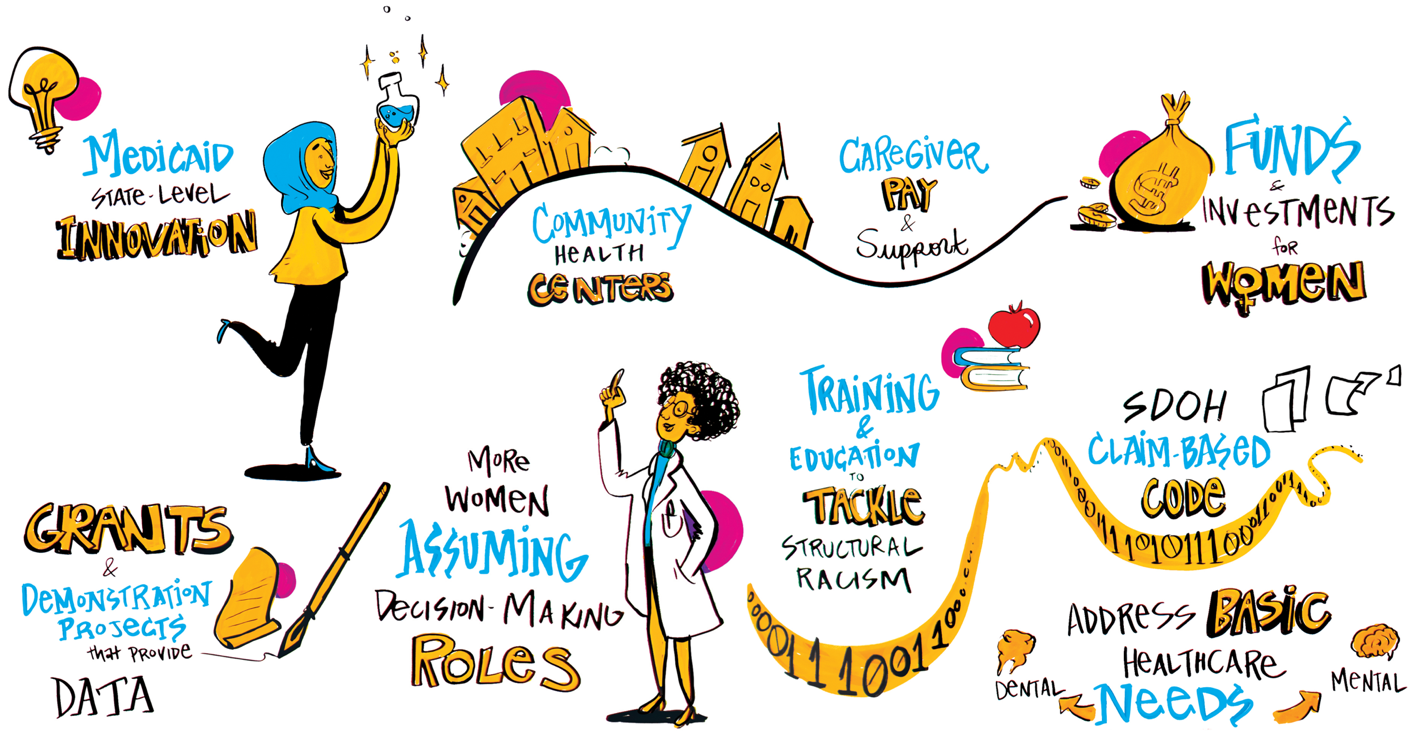 MEDICAID
STATE-LEVEL
INNOVATION
COMMUNITY
HEALTH
CENTERS
CAREGIVER
PAY
&
Support
$
FUNDS
&
INVESTMENTS
for
WOMEN
GRANTS
&
DEMONSTRATION
PROJECTS
that PROVIDE
DATA
MORE
WOMEN
ASSUMING
DECISION-MAKING
ROLES
TRAINING
&
EDUCATION
TO
TACKLE
STRUCTURAL
RACISM
SDOH
CLAIM-BASED
CODE
ADDRESS BASIC
HEALTHCARE
NEEDS
DENTAL
MENTAL